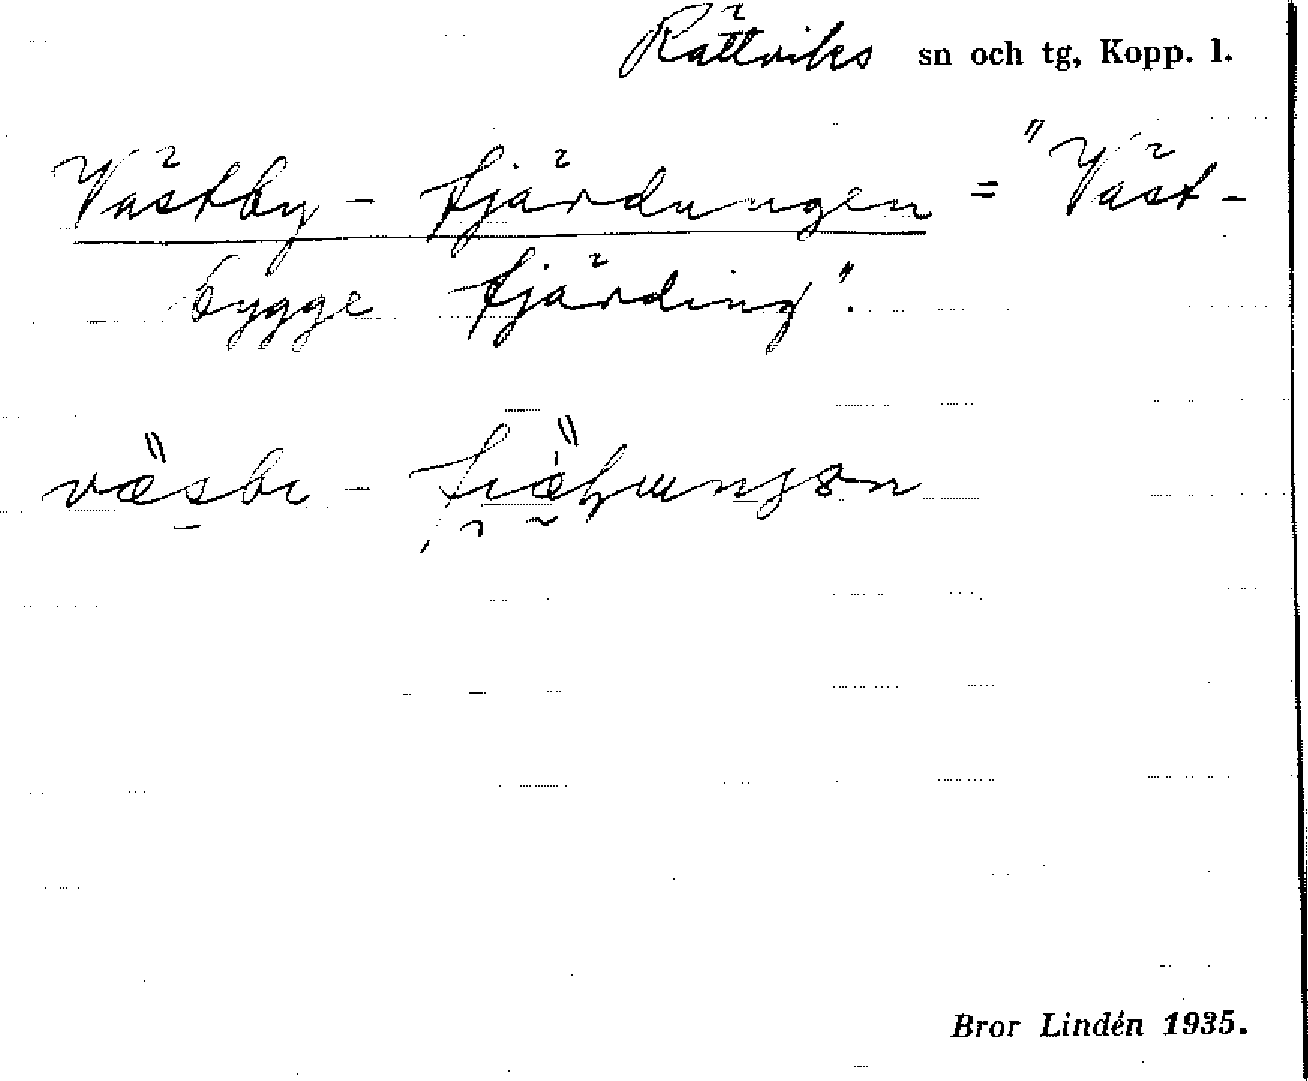 Rättviks sn och tg, Kopp. l.
Västby - fjärdungen = "Väst-
bygge fjärding".
Bror Lindén 1935.